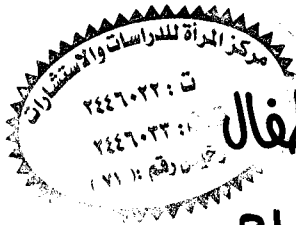 مركز المرأة للدراسات والاستشارات
ت : ٢٤٤٦٠٢٢
: ٢٤٤٦٠٣٣
رقم : ( ٧١ )